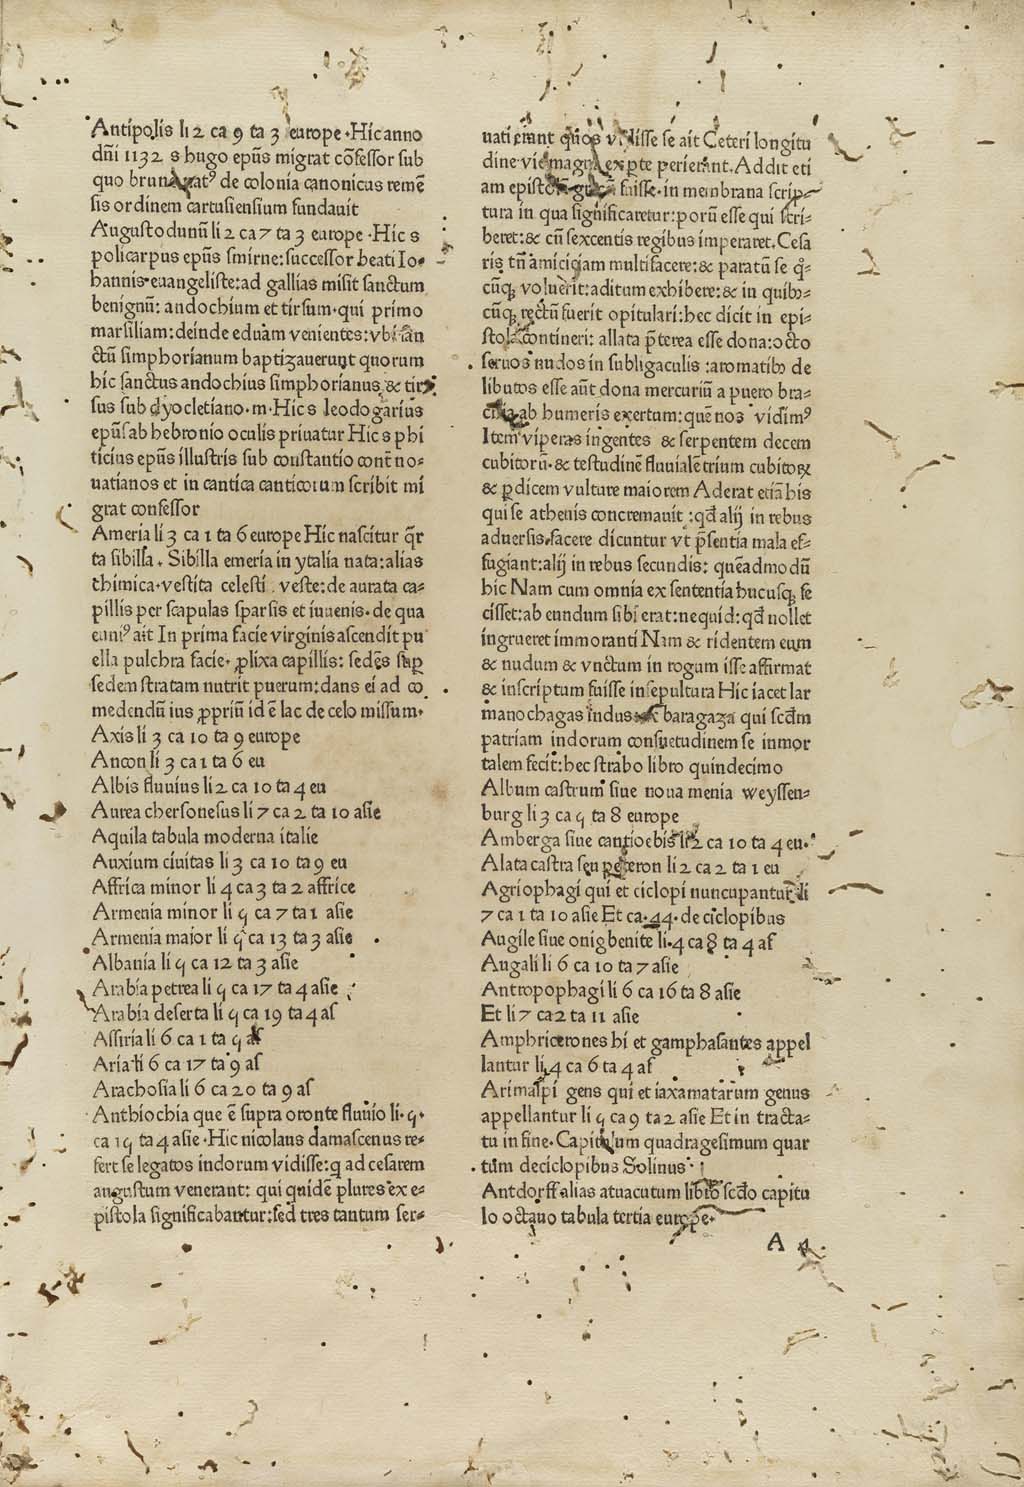 Antipolis li 2 ca 9 ta 3 europe · Hic anno
dñi 1132 s hugo epũs migrat cõfessor sub
quo de colonia canonicus remẽ
sis ordinem cartusiensium fundauit
Augustodunũ li 2 ca 7 ta 3 europe · Hic s
policarpus epũs smirne: successor beati Io-
hannis euangeliste: ad gallias misit sanctum
benignũ: andochium et tirsum · qui primo
marsiliam: deinde eduam venientes: vbi san
ctũ simphorianum baptizauerunt quorum
hic sanctus andochius simphorianus & tir
sus sub dyocletiano · m · Hic s leodogarius
epũs ab hebronio oculis priuatur Hic s phi
ticius epũs illustris sub constantio cont̃ no-
uatianos et in cantica canticorum scribit mi
grat confessor
Ameria li 3 ca 1 ta 6 europe Hic nascitur q̃r
ta sibilla . Sibilla emeria in ytalia nata: alias
chimica · vestita celesti veste: de aurata ca-
pillis per scapulas sparsis et iuuenis · de qua
ait In prima facie virginis ascendit pu
ella pulchra facie · ꝓlixa capillis: sedẽs suꝑ
sedem stratam nutrit puerum: dans ei ad co
medendũ ius ꝓpriũ id ẽ lac de celo missum ·
Axis li 3 ca 10 ta 9 europe
Ancon li 3 ca 1 ta 6 eu
Albis fluuius li 2 ca 10 ta 4 eu
Aurea chersonesus li 7 ca 2 ta 10 asie
Aquila tabula moderna italie
Auxium ciuitas li 3 ca 10 ta 9 eu
Affrica minor li 4 ca 3 ta 2 affrice
Armenia minor li 5 ca 7 ta 1 asie
Armenia maior li 5 ca 13 ta 3 asie
Albania li 5 ca 12 ta 3 asie
Arabia petrea li 5 ca 17 ta 4 asie
Arabia deserta li 5 ca 19 ta 4 as
Assiria li 6 ca 1 ta 5 as
Aria li 6 ca 17 ta 9 as
Arachosia li 6 ca 20 ta 9 as
Anthiochia que ẽ supra oronte fluuio li · 5 ·
ca 15 ta 4 asie · Hic nicolaus damascenus re-
fert se legatos indorum vidisse: q ad cesarem
augustum venerant: qui quidẽ plures ex e-
pistola significabantur: sed tres tantum ser-
uati erant quos vidisse se ait Ceteri longitu
dine vie magna ex ꝑte perierant. Addit eti
am fuisse · in membrana scrip-
tura in qua significaretur: porũ esse qui scri-
beret: & cũ sexcentis regibus imperaret. Cesa
ris tñ amiciciam multifacere: & paratũ se q̃-
cũqꝫ voluerit: aditum exhibere: & in quibꝰ-
cũqꝫ rectũ fuerit opitulari: hec dicit in epi-
stola contineri: allata p̃terea esse dona: octo
seruos nudos in subligaculis: aromatibꝰ de
libutos esse aũt dona mercuriũ a puero bra-
ab humeris exertum: quẽ nos vidimꝰ
Item viperas ingentes & serpentem decem
cubitorũ · & testudinẽ fluuialẽ trium cubitoꝝ
& ꝑdicem vulture maiorem Aderat etiã his
qui se athenis concremauit : qđ alij in rebus
aduersis facere dicuntur vt p̃sentia mala ef-
fugiant: alij in rebus secundis: quẽadmodũ
hic Nam cum omnia ex sententia hucusqꝫ se
cisset: ab eundum sibi erat: ne quid: qđ nollet
ingrueret immoranti Nam & ridentem eum
& nudum & vnctum in rogum isse affirmat
& inscriptum fuisse in sepultura Hic iacet Iar
manochagas indus baragaza qui scđm
patriam indorum consuetudinem se inmor
talem fecit: hec strabo libro quindecimo
Album castrum siue noua menia weyssen-
burg li 3 ca 5 ta 8 europe
Amberga siue cantioebis li 2 ca 10 ta 4 eu ·
Alata castra seu peteron li 2 ca 2 ta 1 eu
Agriophagi qui et ciclopi nuncupantur li
7 ca 1 ta 10 asie Et ca · 44 · de ciclopibus
Augile siue onigbenite li · 4 ca 8 ta 4 af
Augali li 6 ca 10 ta 7 asie
Antropophagi li 6 ca 16 ta 8 asie
Et li 7 ca 2 ta 11 asie
Amphricerones hi et gamphasantes appel
lantur li 4 ca 6 ta 4 af
Arimaspi gens qui et iaxamatarum genus
appellantur li 5 ca 9 ta 2 asie Et in tracta-
tu in fine · Capitulum quadragesimum quar
tum deciclopibus Solinus
Antdorff alias atuacutum libro scđo capitu
lo octauo tabula tertia europe ·
A 4